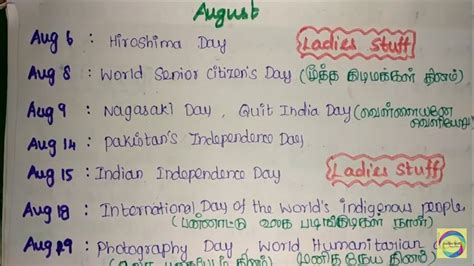 August
Aug 6 : Hiroshima Day
Ladies Stuff
Aug 8 : World Senior Citizen's Day (மூத்த குடிமக்கள் தினம்)
Aug 9 : Nagasaki Day, Quit India Day (வெள்ளையனே
வெளியேறு
Aug 14 : Pakistan's Independence Day
Aug 15 : Indian Independence Day
Ladies Stuff
Aug 18 : International Day of the World's indigenous people
(பன்னாட்டு உலக
நாள்)
Aug 19 : Photography Day, World Humanitarian
(உலக தினம்) (மனித நேய தினம்)